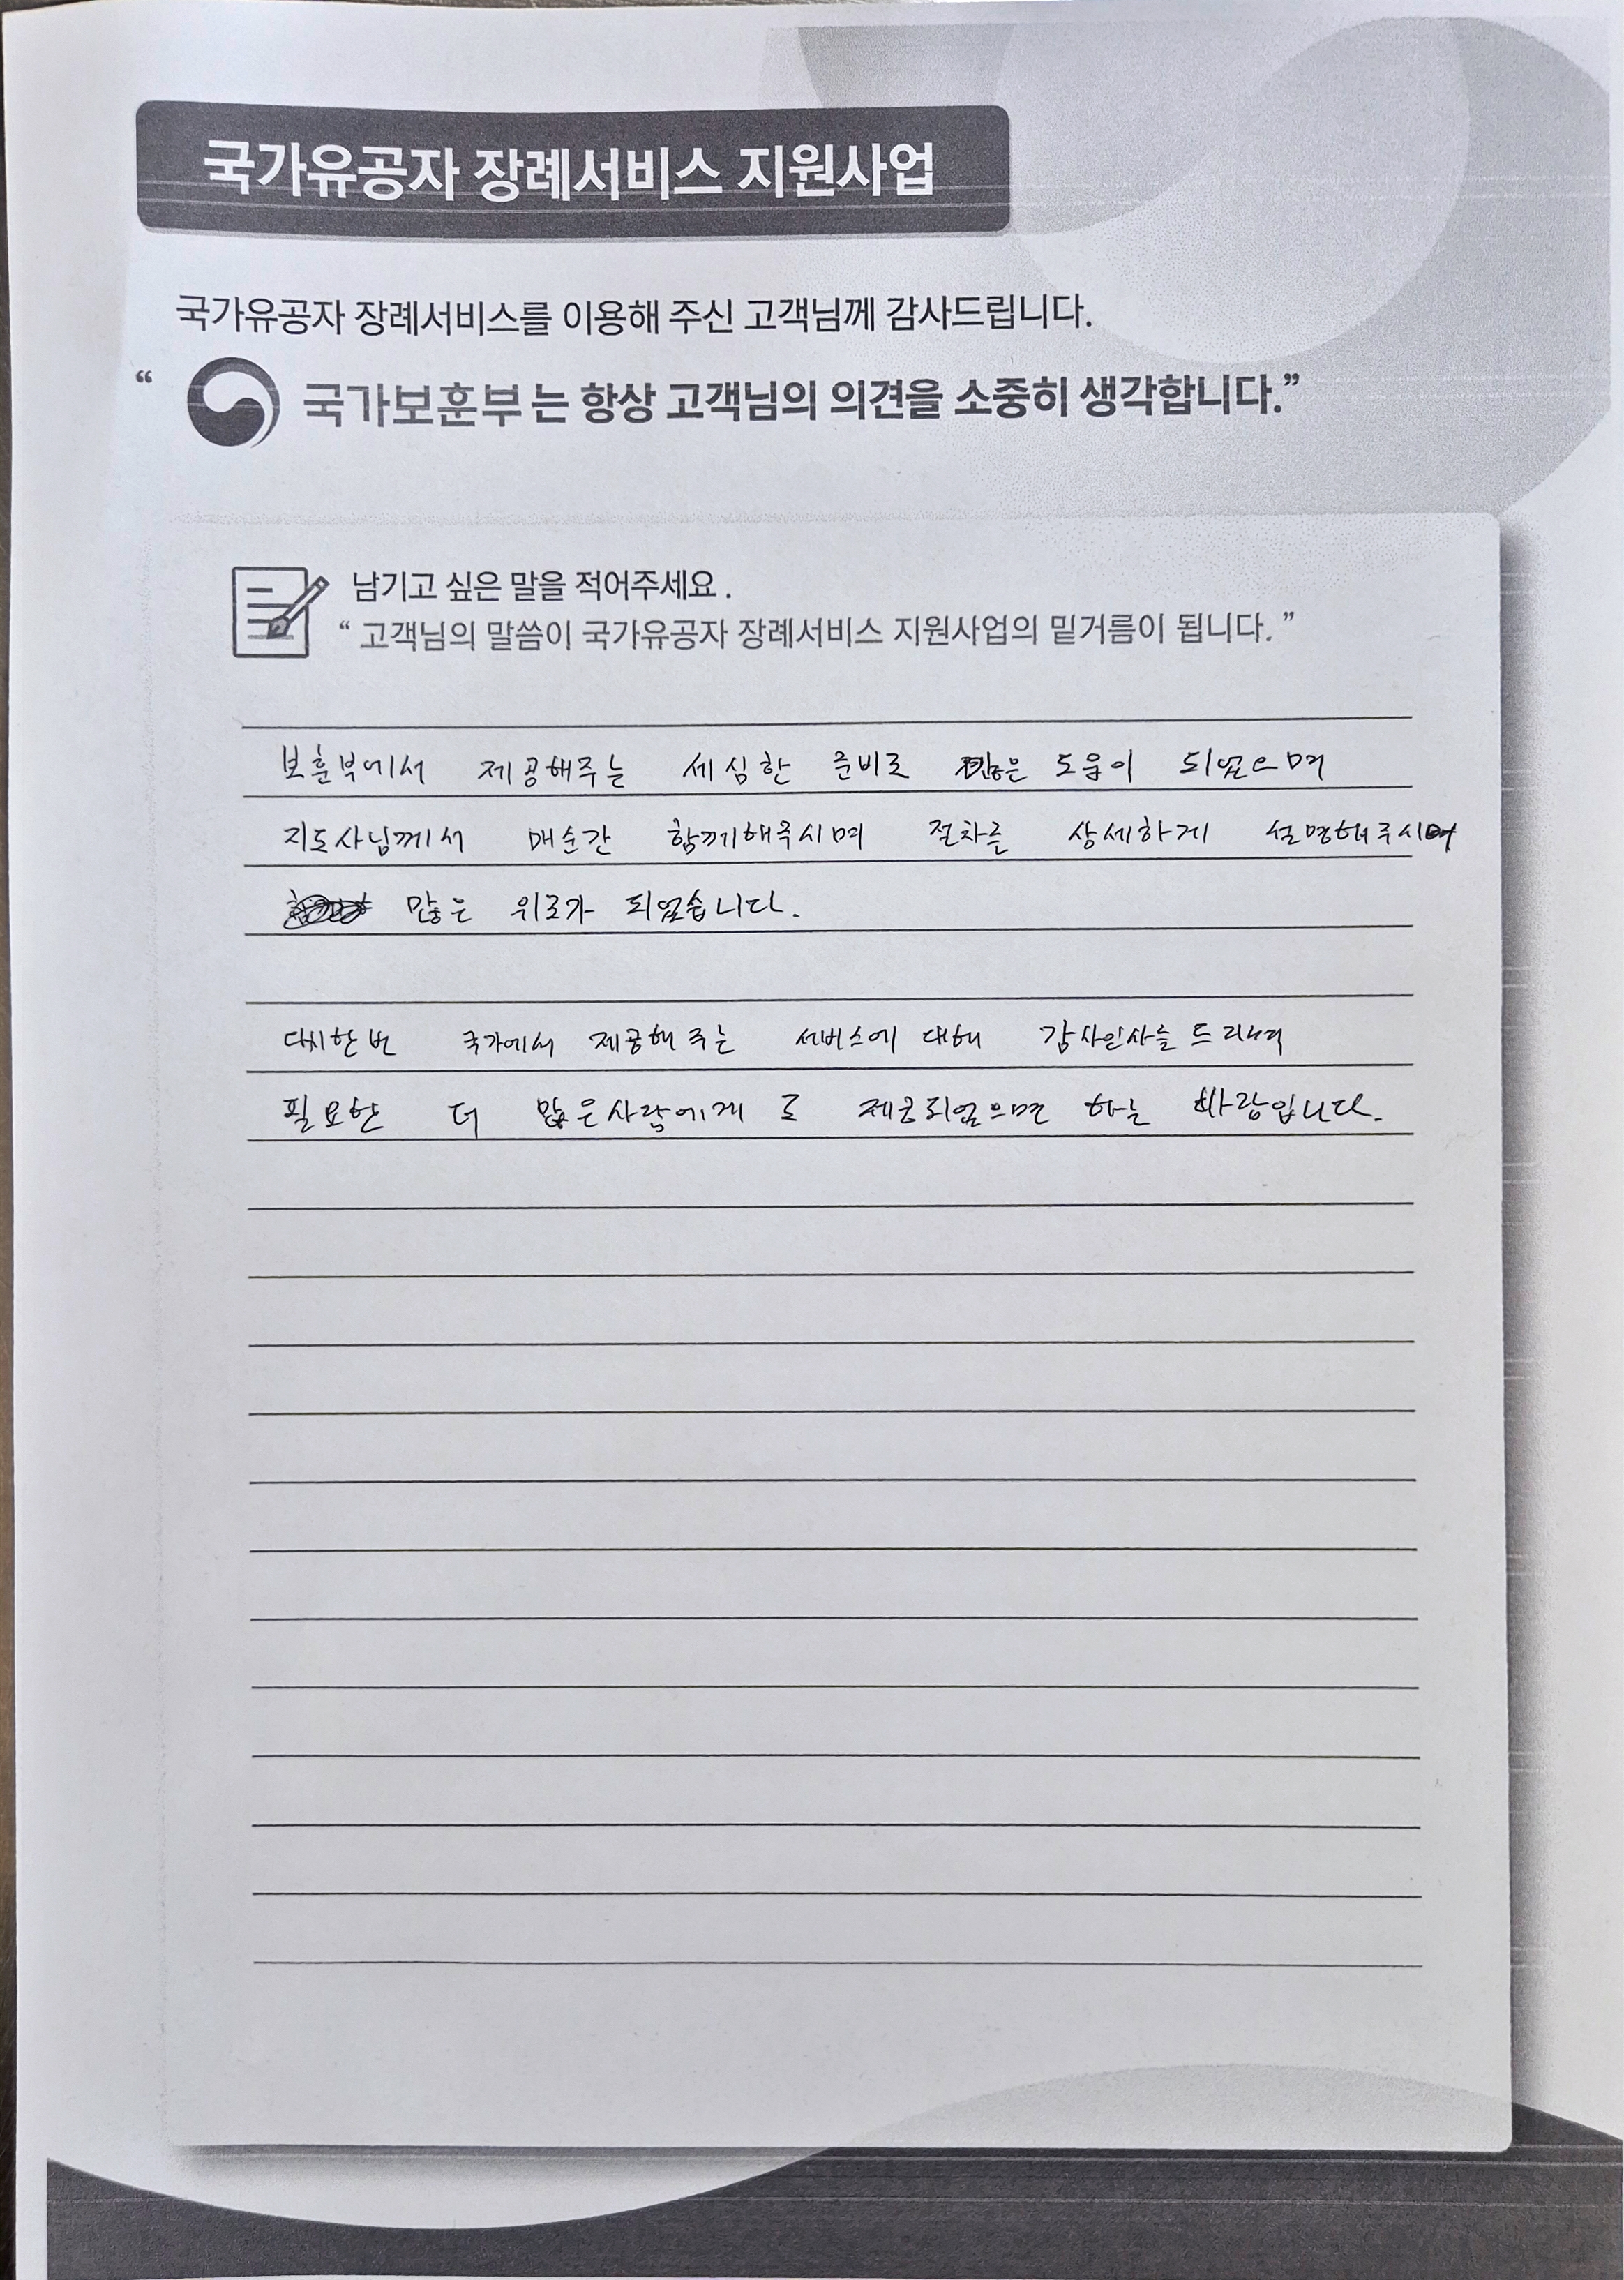 국가유공자 장례서비스 지원사업
국가유공자 장례서비스를 이용해 주신 고객님께 감사드립니다.
“ 국가보훈부 는 항상 고객님의 의견을 소중히 생각합니다.”
남기고 싶은 말을 적어주세요 .
“ 고객님의 말씀이 국가유공자 장례서비스 지원사업의 밑거름이 됩니다. ”
보훈부에서 제공해주는 세심한 준비로 많은 도움이 되었으며
지도사님께서 매순간 함께해주시며 절차를 상세하게 설명해주시며
많은 위로가 되었습니다.
다시한번 국가에서 제공해 주는 서비스에 대해 감사인사를 드리며
필요한 더 많은사람에게 로 제공되었으면 하는 바람입니다.